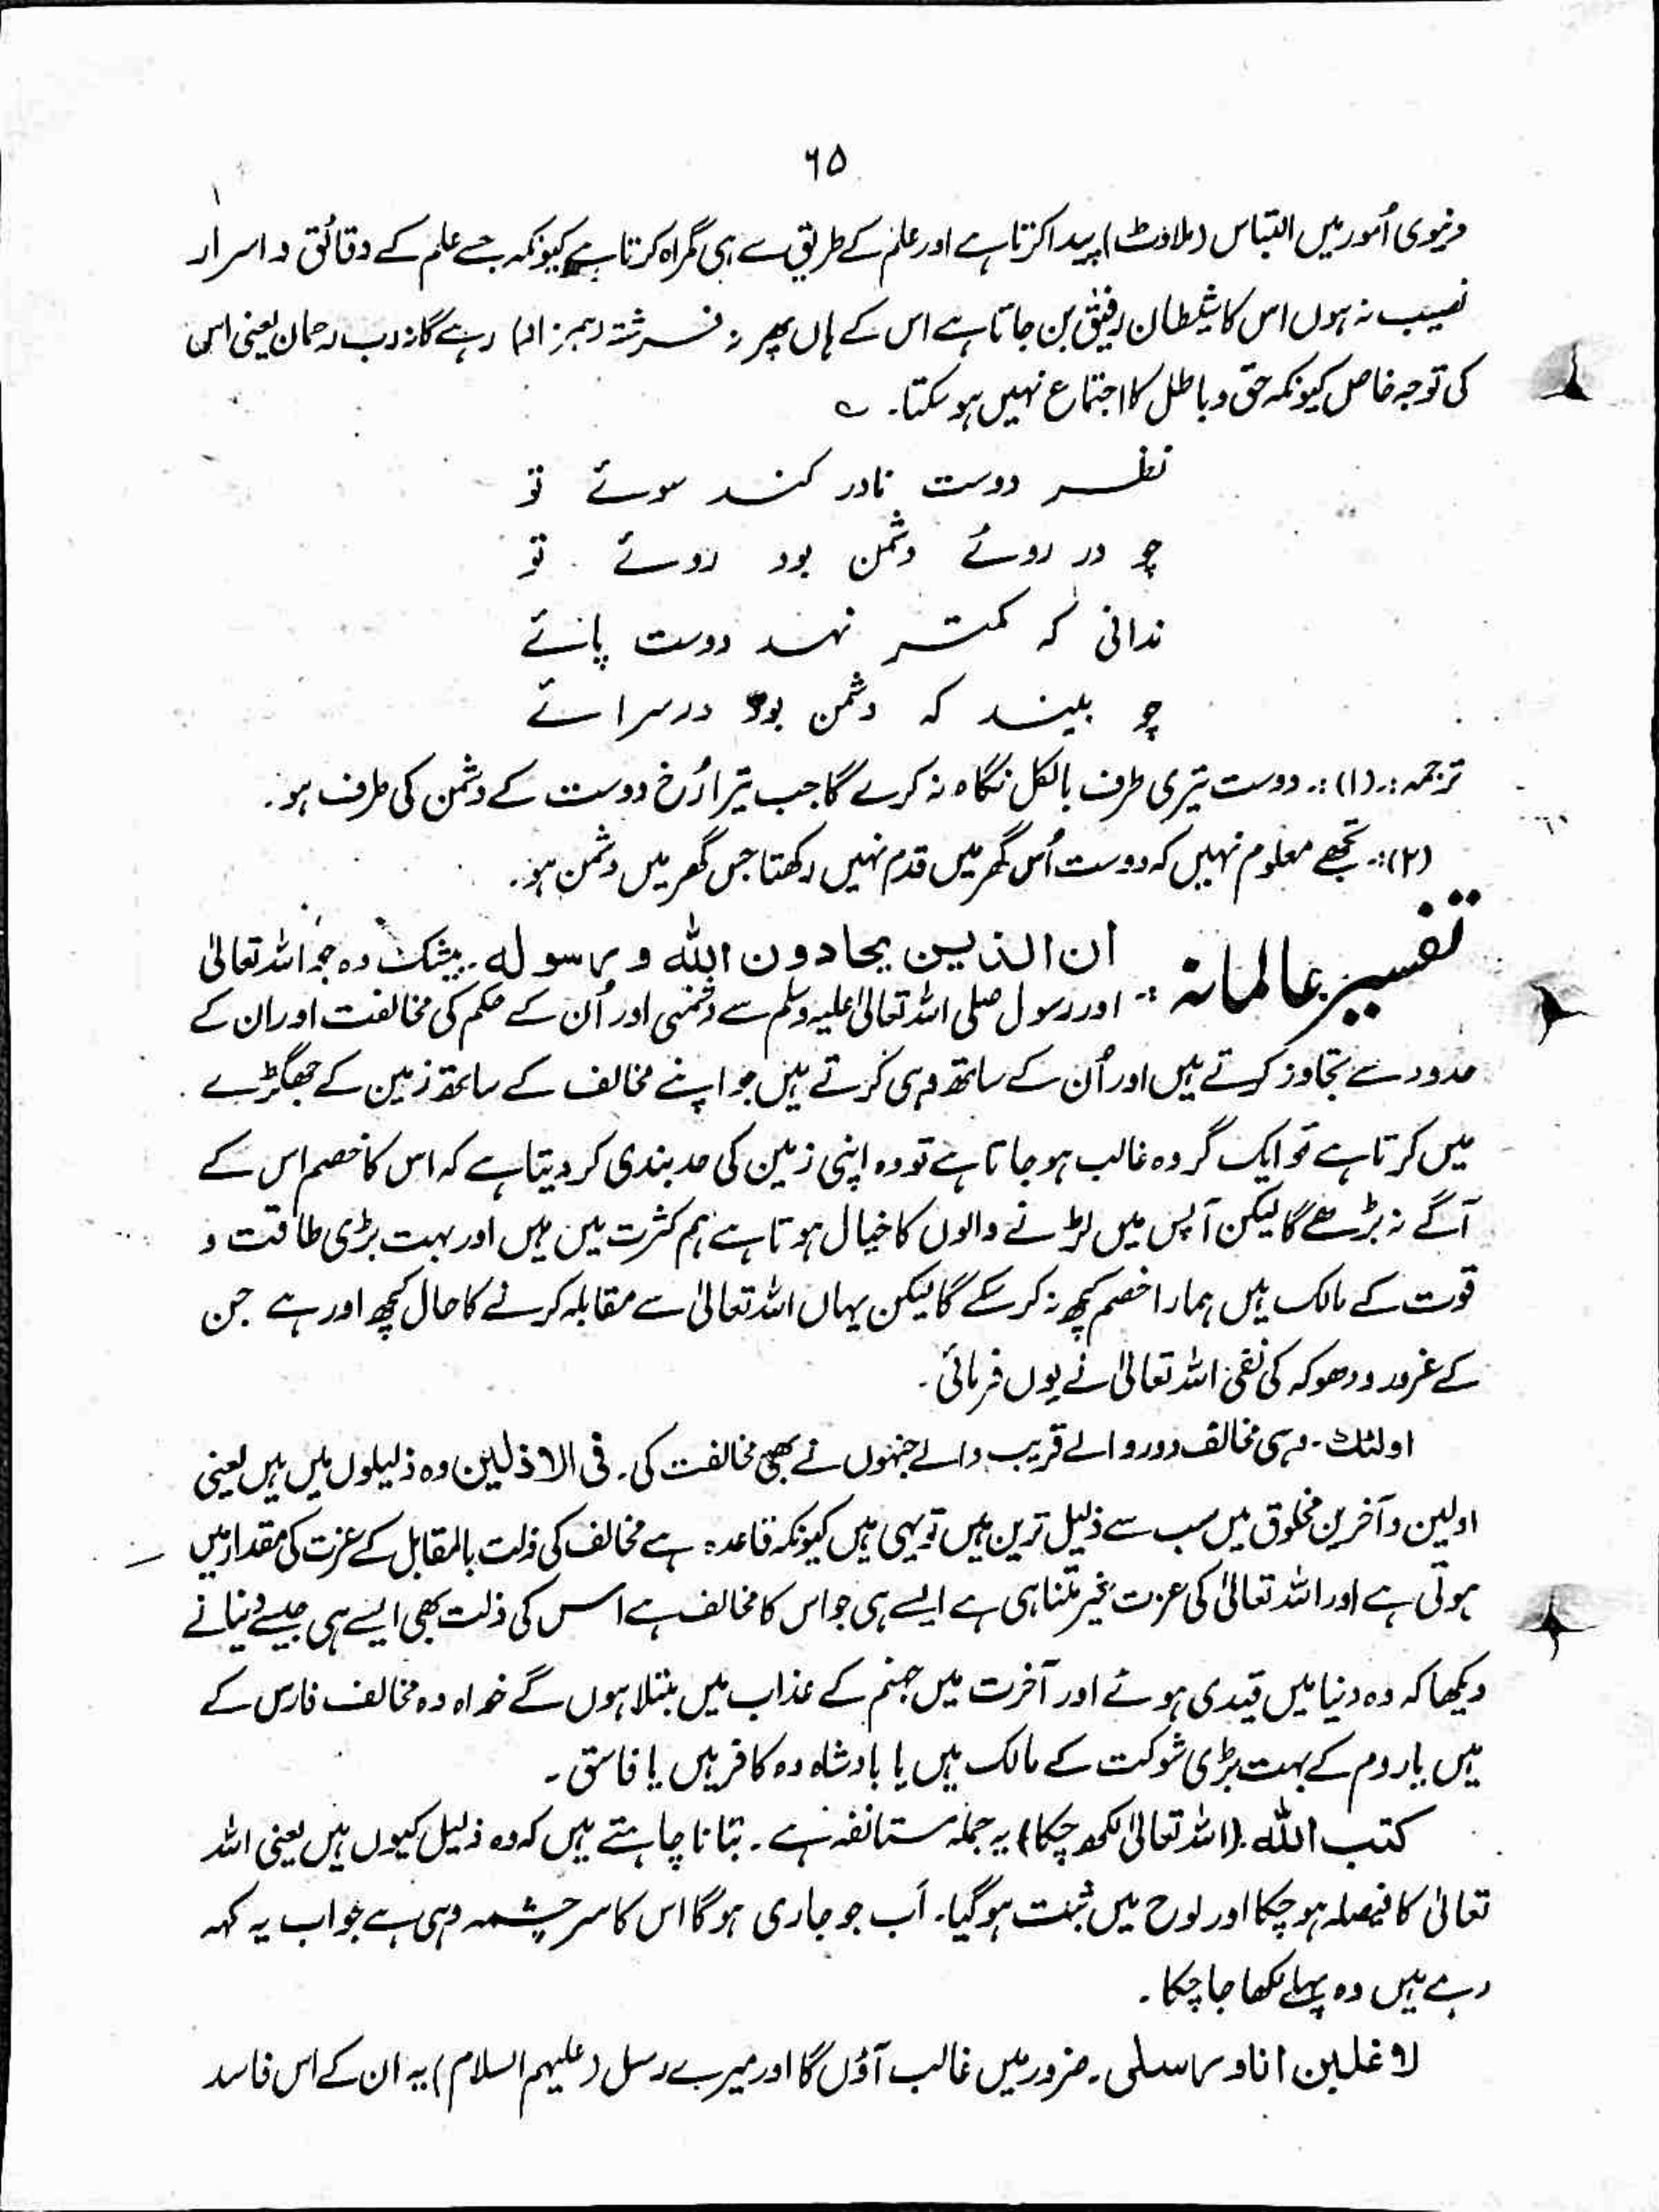 ۶۵
دنیوی اُمور میں التباس (ملاوٹ) پیدا کرتا ہے اور علم کے طریق سے ہی گمراہ کرتا ہے کیونکہ جسے علم کے دقائق و اسرار
نصیب نہ ہوں اس کا شیطان رفیق بن جاتا ہے اس کے ہاں پھر نہ فرشتہ رہبر رہے گا نہ رب رحمان یعنی اس
کی توجہ خاص کیونکہ حق و باطل کا اجتماع نہیں ہو سکتا۔ ؎
نظر دوست نادر کند سوئے تو
چو در روئے دشمن بود روئے تو
ندانی کہ کمتر نہد دوست پائے
چو بیند کہ دشمن بود در سرائے
ترجمہ :۔ (۱) :۔ دوست تیری طرف بالکل نگاہ نہ کرے گا جب تیرا رُخ دوست کے دشمن کی طرف ہو۔
(۲) :۔ تجھے معلوم نہیں کہ دوست اُس گھر میں قدم نہیں رکھتا جس گھر میں دشمن ہو۔
تفسیر عالمانہ :۔ ان الذین یحادون اللہ و رسولہ۔ بیشک وہ جو اللہ تعالیٰ
اور رسول صلی اللہ تعالیٰ علیہ وسلم سے دشمنی اور اُن کے حکم کی مخالفت اور ان کے
حدود سے تجاوز کرتے ہیں اور اُن کے ساتھ وہی کرتے ہیں جو اپنے مخالف کے ساتھ زمین کے جھگڑے
میں کرتا ہے تو ایک گروہ غالب ہو جاتا ہے تو وہ اپنی زمین کی حد بندی کر دیتا ہے کہ اس کا خصم اس کے
آگے نہ بڑھے گا لیکن آپس میں لڑنے والوں کا خیال ہوتا ہے ہم کثرت میں ہیں اور بہت بڑی طاقت و
قوت کے مالک ہیں ہمارا خصم کچھ نہ کر سکے گا لیکن یہاں اللہ تعالیٰ سے مقابلہ کرنے کا حال کچھ اور ہے جن
کے غرور و دھوکہ کی نفی اللہ تعالیٰ نے یوں فرمائی۔
اولئک۔ وہی مخالف دور والے قریب والے جنہوں نے بھی مخالفت کی۔ فی الاذلین وہ ذلیلوں میں ہیں یعنی
اولین و آخرین مخلوق میں سب سے ذلیل ترین ہیں تو یہی ہیں کیونکہ قاعدہ ہے مخالف کی ذلت بالمقابل کے عزت کی مقدار میں
ہوتی ہے اور اللہ تعالیٰ کی عزت غیر متناہی ہے ایسے ہی جو اس کا مخالف ہے اس کی ذلت بھی ایسے ہی جیسے دنیا نے
دیکھا کہ وہ دنیا میں قیدی ہوئے اور آخرت میں جہنم کے عذاب میں مبتلا ہوں گے خواہ وہ مخالف فارس کے
ہیں یا روم کے بہت بڑی شوکت کے مالک ہیں یا بادشاہ وہ کافر ہیں یا فاسق۔
کتب اللہ۔ (اللہ تعالیٰ لکھ چکا) یہ جملہ مستانفہ ہے۔ بتانا چاہتے ہیں کہ وہ ذلیل کیوں ہیں یعنی اللہ
تعالیٰ کا فیصلہ ہو چکا اور لوح میں ثبت ہو گیا۔ اَب جو جاری ہوگا اس کا سرچشمہ وہی ہے جو اب یہ کہہ
رہے ہیں وہ پہلے لکھا جا چکا۔
لاغلبن انا و رسلی۔ ضرور میں غالب آؤں گا اور میرے رسل (علیہم السلام) یہ ان کے اس فاسد